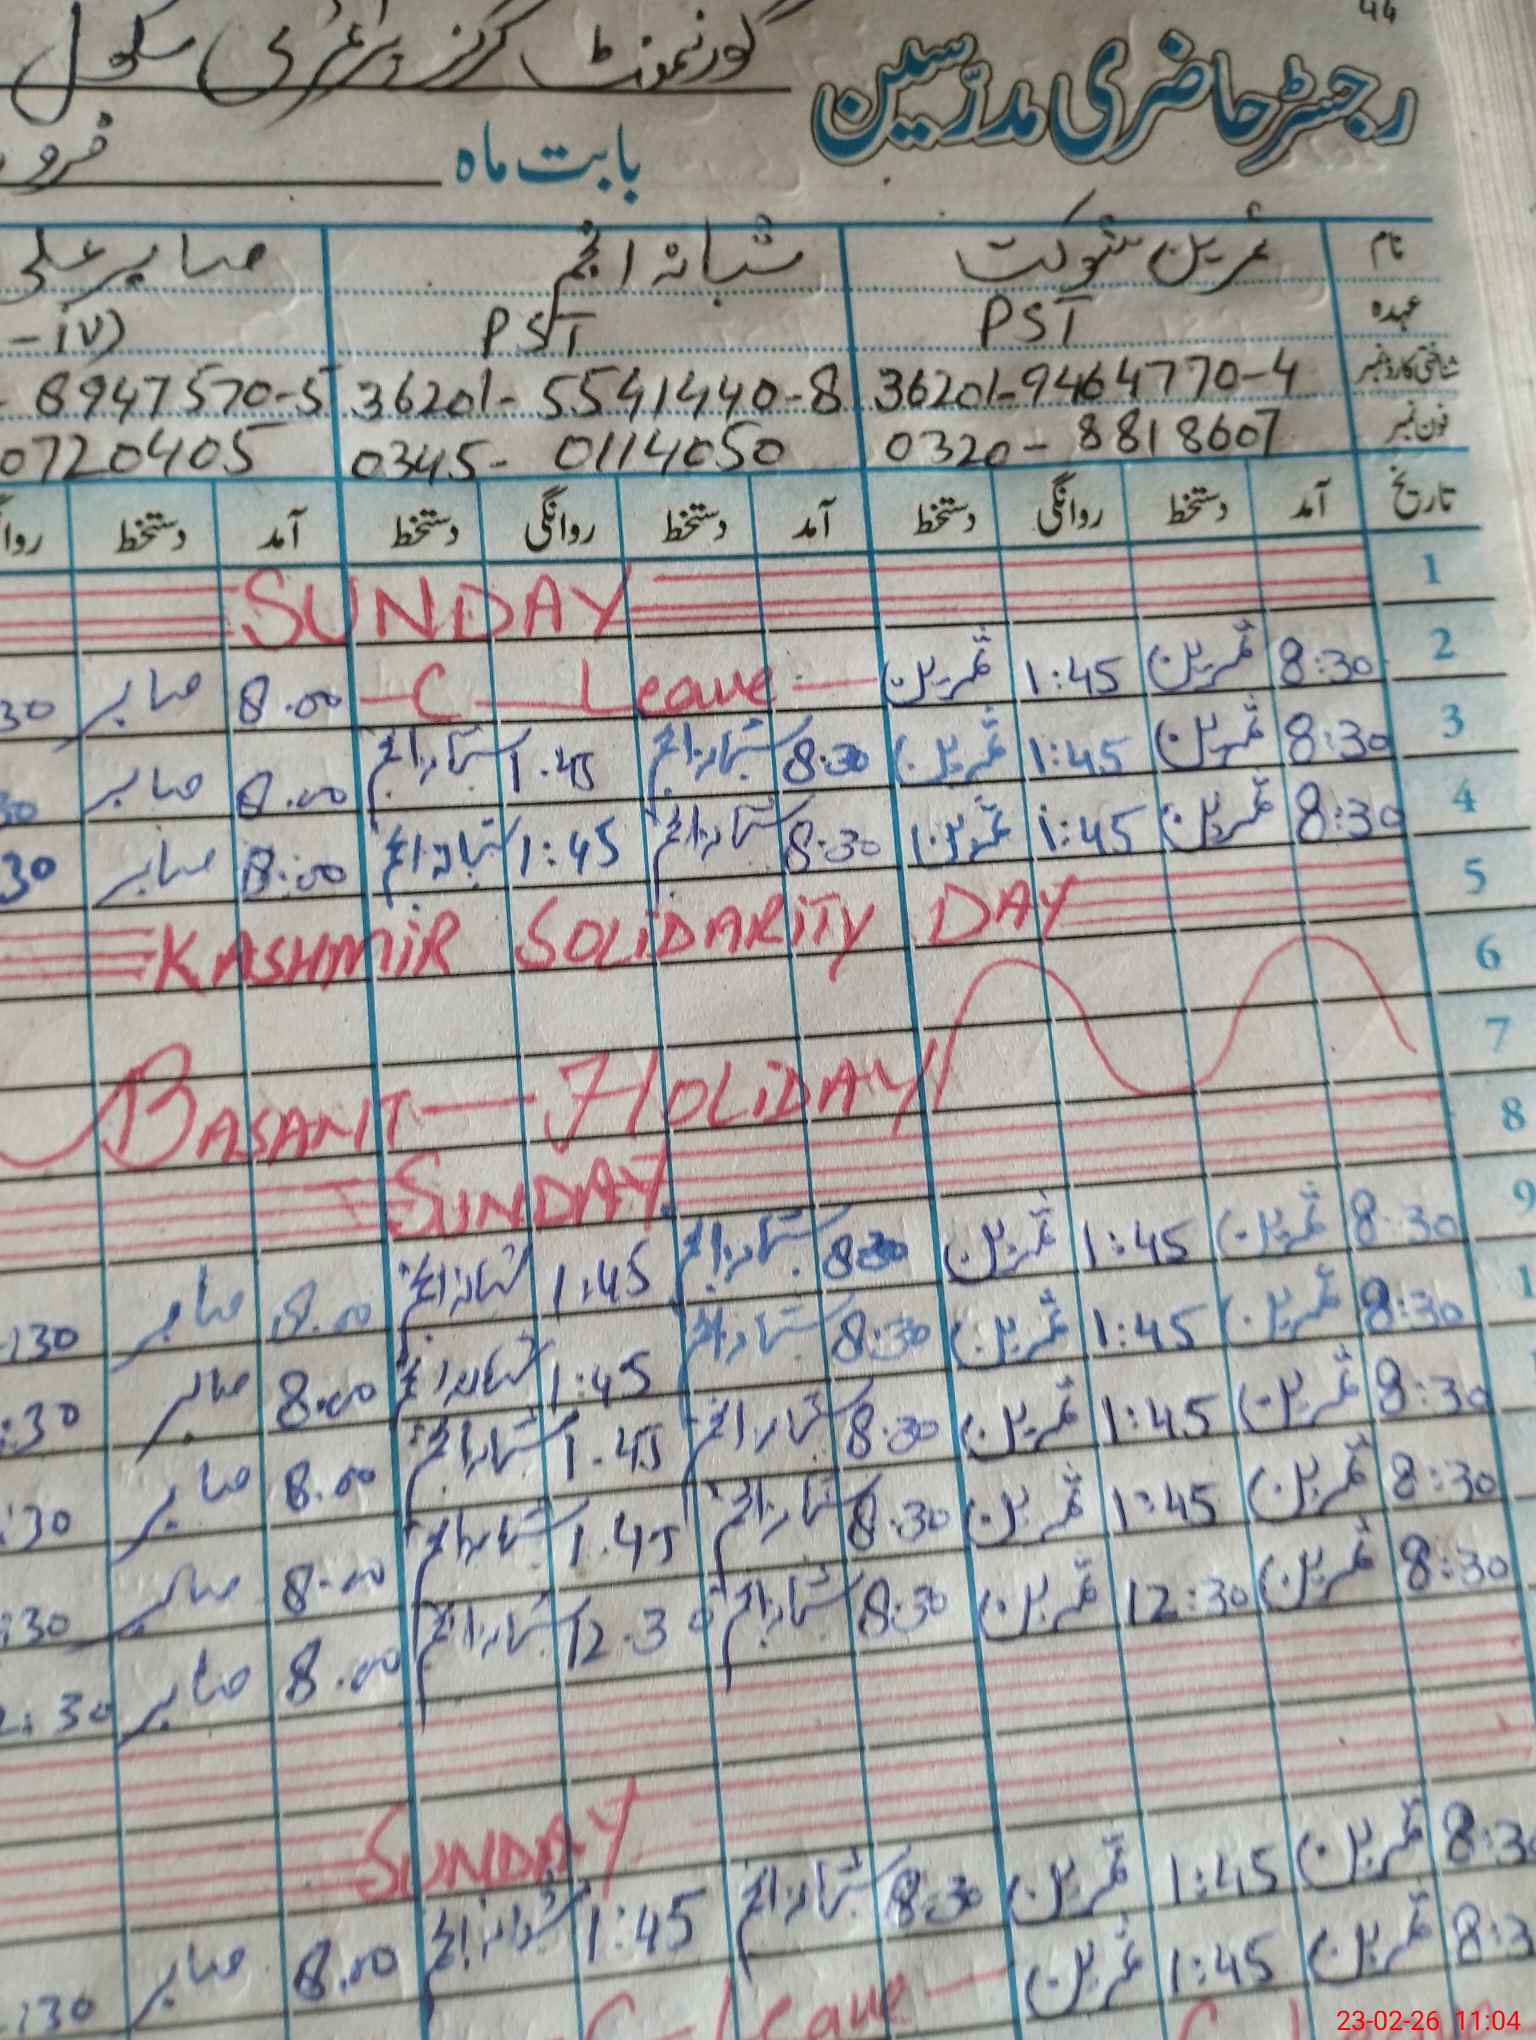 44
رجسٹر حاضری مدرسین گورنمنٹ گرلز پرائمری سکول
بابت ماہ فرو
نام عمرین شوکت شبانہ انجم صابر علی
عہدہ PST PST -IV)
شناختی کارڈ نمبر 36201-9464770-4 36201-5541440-8 - 8947570-5
فون نمبر 0320-8818607 0345-0114050 0720405
تاریخ آمد دستخط روانگی دستخط آمد دستخط روانگی دستخط آمد دستخط روا
1 SUNDAY
2 8:30 عمرین 1:45 عمرین — C — Leave — 8.00 صابر 30
3 8:30 عمرین 1:45 عمرین 8:30 شبانہ انجم 1.45 شبانہ انجم 8.00 صابر 30
4 8:30 عمرین 1:45 عمرین 8:30 شبانہ انجم 1:45 شبانہ انجم 8:00 صابر 30
5 KASHMIR SOLIDARITY DAY
6
7 BASANT — HOLIDAY
8 SUNDAY
9 8:30 عمرین 1:45 عمرین 8:30 شبانہ انجم 1:45 شبانہ انجم 8.00 صابر :30
1 8:30 عمرین 1:45 عمرین 8:30 شبانہ انجم 1:45 شبانہ انجم 8.00 صابر :30
8:30 عمرین 1:45 عمرین 8:30 شبانہ انجم 1.45 شبانہ انجم 8.00 صابر :30
8:30 عمرین 1:45 عمرین 8:30 شبانہ انجم 1.45 شبانہ انجم 8.00 صابر :30
8:30 عمرین 12:30 عمرین 8:30 شبانہ انجم 12.30 شبانہ انجم 8.00 صابر 2:30
SUNDAY
8:30 عمرین 1:45 عمرین 8:30 شبانہ انجم 1:45 شبانہ انجم 8.00 صابر :30
8:3 عمرین 1:45 عمرین — C - Leave —
23-02-26 11:04